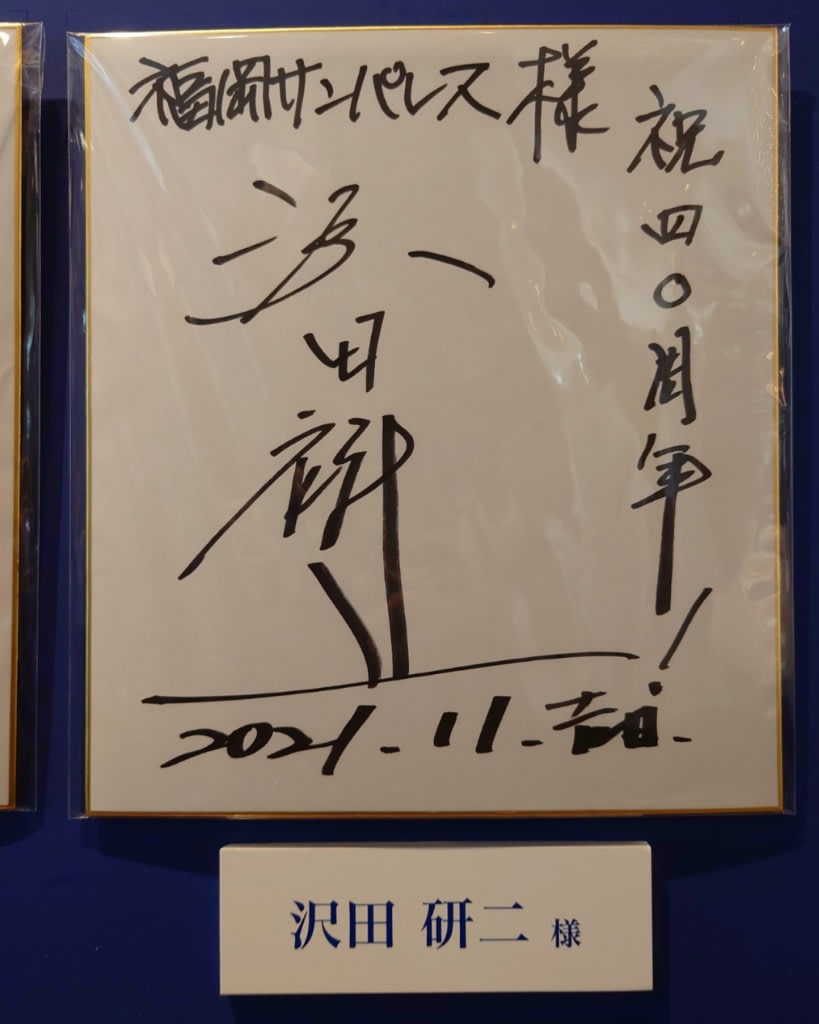 福岡サンパレス様
祝四〇周年!
沢田研二
2021.11.吉日.
沢田 研二 様